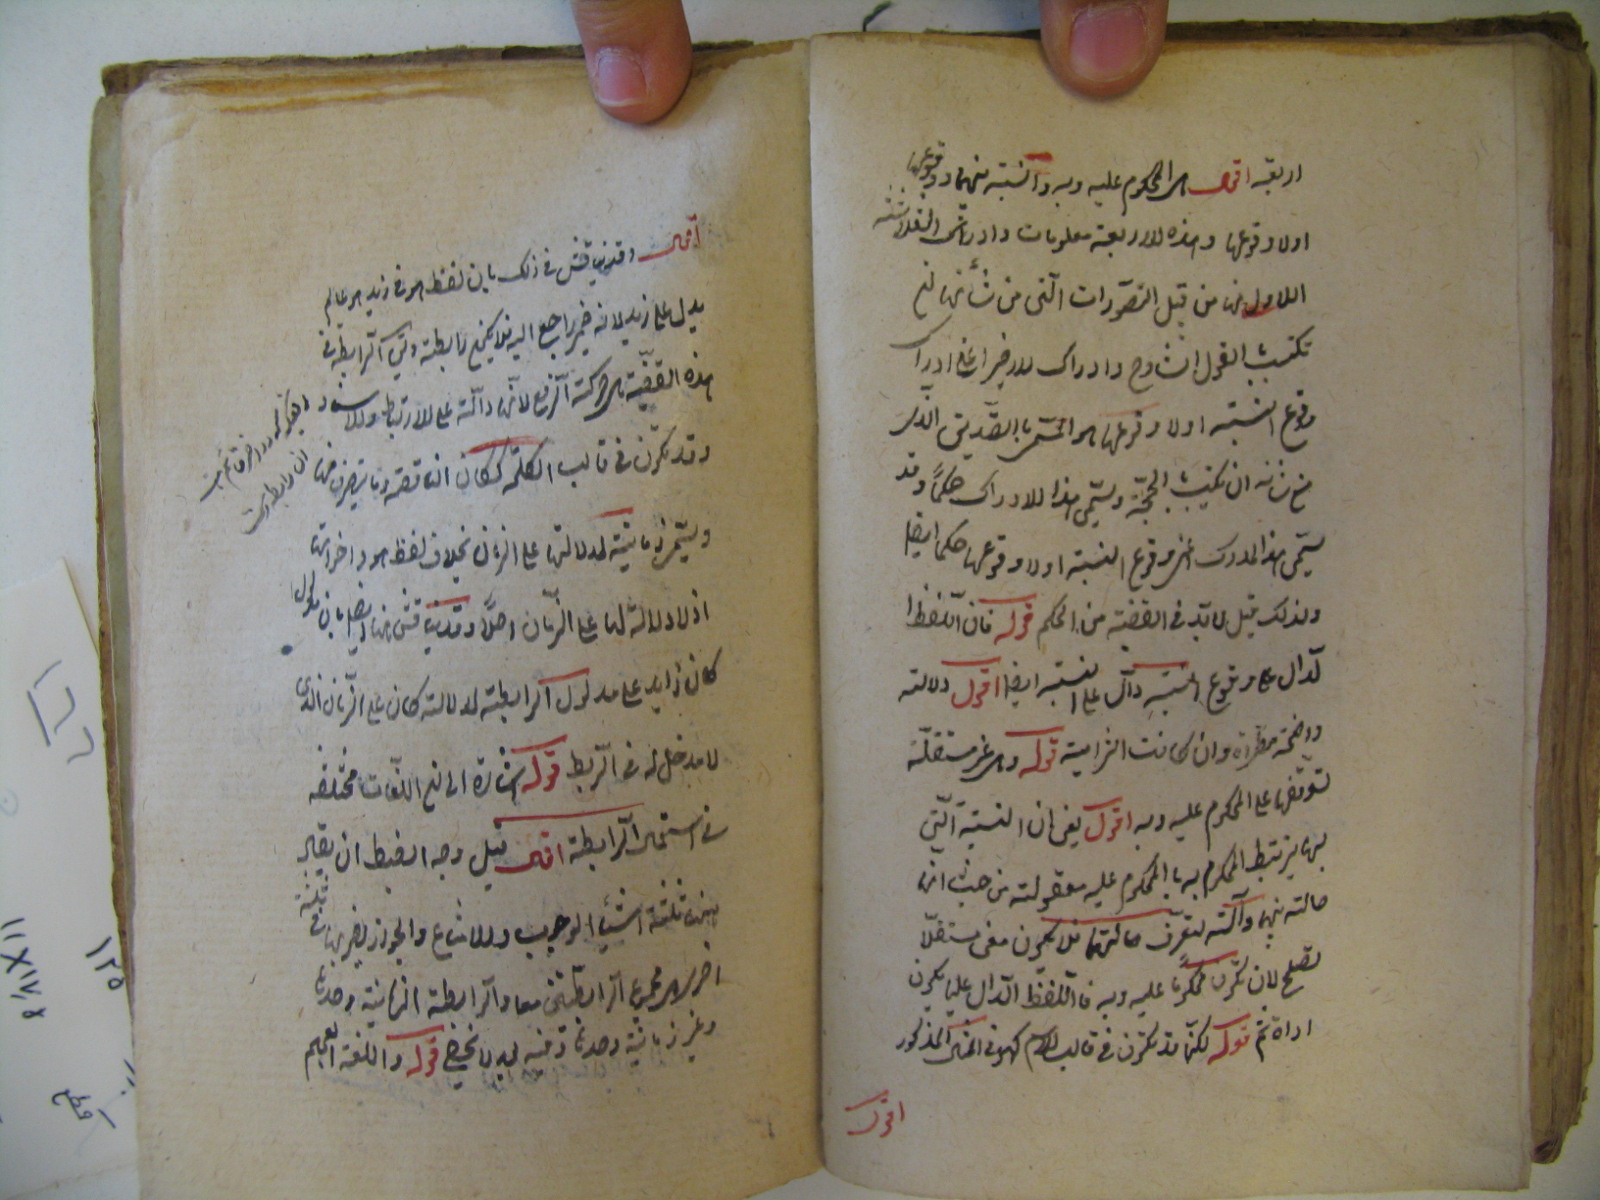 اربعة اقول هى المحكوم عليه وبه والنسبة بينهما ووقوعها
اولا وقوعها وهذه الاربعة معلومات وادراك الثلاثة
الاول منها من قبيل التصورات التى من شأنها ان
تكتسب بالقول الشارح وادراك الاخير اعنى ادراك
وقوع النسبة اولا وقوعها هو المسمى بالتصديق الذى
من شانه ان يكتسب بالحجة ويسمى هذا الادراك حكما وقد
يسمى هذا المدرك اعنى وقوع النسبة اولا وقوعها حكما ايضا
ولذلك قيل لابد فى القضية من الحكم قوله فان اللفظ
الدال على وقوع النسبة دال على النسبة ايضا اقول دلالته
واضحة مطردة وان كانت التزامية قوله وهى غير مستقلة
لتوقفها على المحكوم عليه وبه اقول يعنى ان النسبة التى
بها يرتبط المحكوم به بالمحكوم عليه معقولة من حيث انها
حالة بينهما وآلة لتعرف حالتهما فلا يكون معنى مستقلا
يصلح لان تكون محكوما عليه وبه فاللفظ الدال عليها يكون
اداة ثم قوله لكنها قد تكون فى قالب الاسم كهو فى المثال المذكور
اقول
اقول وقد يناقش فى ذلك بان لفظ هو فى زيد هو عالم
يدل على زيد لانه ضمير راجع اليه فلا يكون رابطة ولكن الرابطة فى
هذه القضية هى حركة الرفع لانها دالة على الارتباط والاسناد
وقد تكون فى قالب الكلمة ككان الناقصة وما يتصرف منها
ويسمى زمانية لدلالتها على الزمان بخلاف لفظ هو واخواتها
اذ لا دلالة لها على الزمان اصلا وقد يناقش هنا ايضا بان مدلول
كان زايد على مدلول الرابطة لدلالة كان على الزمان الذى
لا مدخل له فى الربط قوله اشارة الى ان اللغات مختلفة
فى استعمال الرابطة اقول قيل وجه الضبط ان يقال
بهنا ثلثة اشياء الوجوب والامتناع والجواز يضربها فى ثلثة
اخرى هى مجموع الرابطتين معا والرابطة الزمانية وحدها
وغير زمانية وحدها قوله واللغة العجم